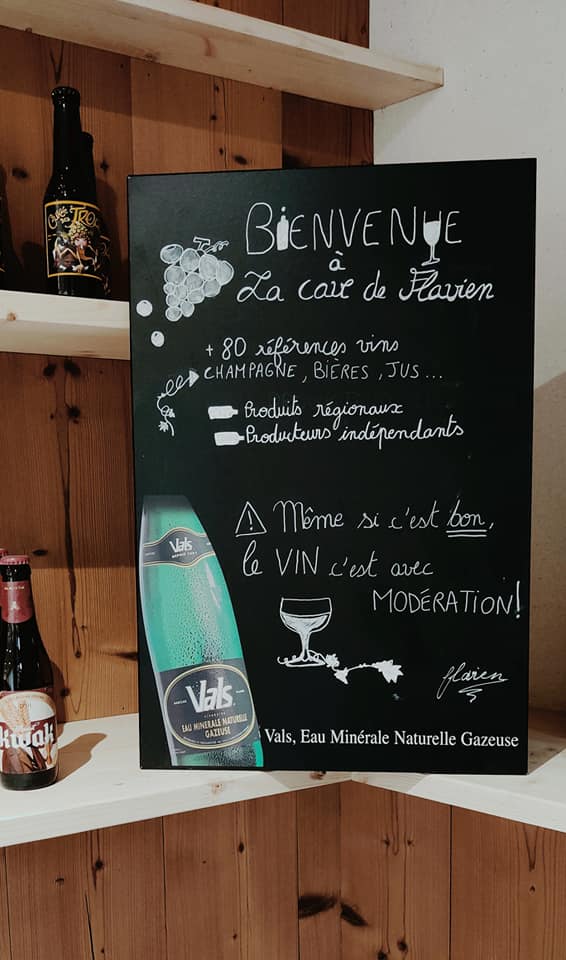 BIENVENUE
à
La cave de Flavien
+ 80 références vins
CHAMPAGNE, BIÈRES, JUS...
Produits régionaux
Producteurs indépendants
Même si c'est bon,
le VIN c'est avec
MODÉRATION!
flavien
Vals
Vals
EAU MINERALE NATURELLE
GAZEUSE
Vals, Eau Minérale Naturelle Gazeuse
Kwak